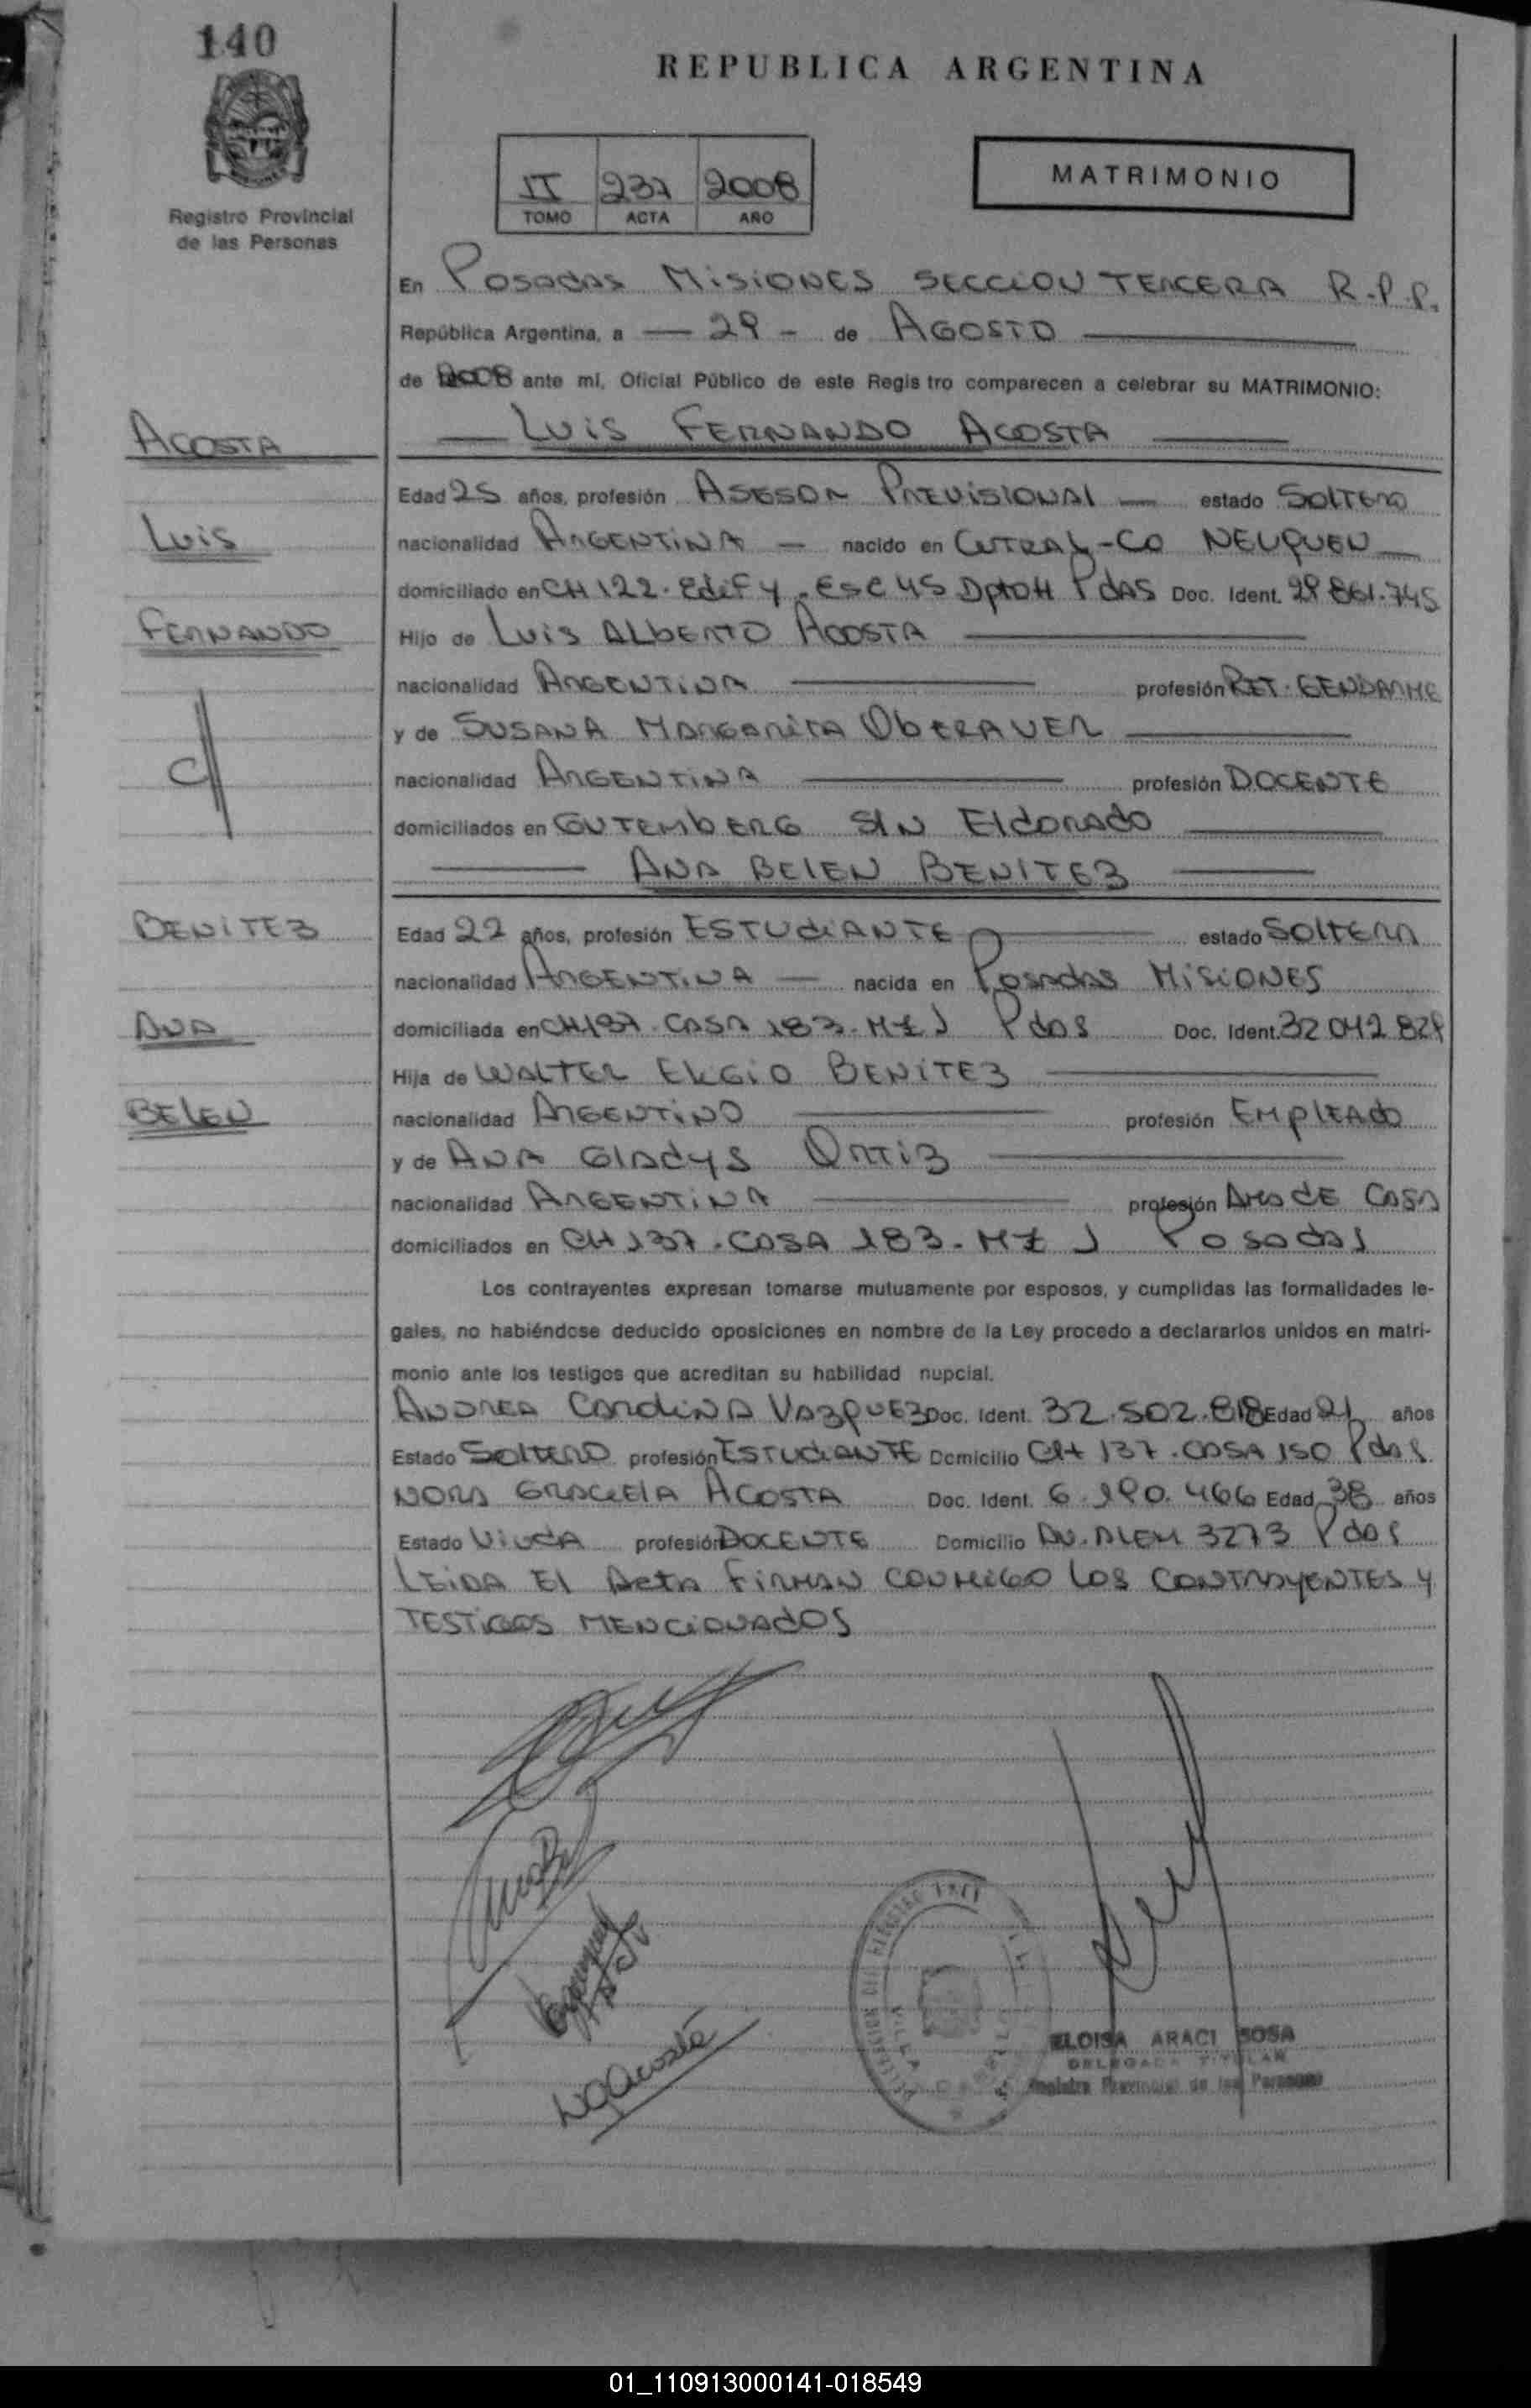 140
REPUBLICA ARGENTINA
II 237 2008
TOMO ACTA AÑO
MATRIMONIO
Registro Provincial
de las Personas
En Posadas Misiones SECCION TERCERA R.P.P.
República Argentina, a — 29 - de AGOSTO
de 2008 ante mí, Oficial Público de este Regis tro comparecen a celebrar su MATRIMONIO:
ACOSTA
LUIS FERNANDO ACOSTA
Edad 25 años, profesión ASESOR PREVISIONAL — estado SOLTERO
LUIS
nacionalidad ARGENTINA — nacido en CUTRAL-CO NEUQUEN
domiciliado en CH 122. Edif 4. Esc 45 Dpto H Pdas Doc. Ident. 29 861.745
FERNANDO
Hijo de LUIS ALBERTO ACOSTA
nacionalidad ARGENTINA profesión RET. GENDARME
y de SUSANA MARGARITA OBERAUER
nacionalidad ARGENTINA profesión DOCENTE
domiciliados en GUTEMBERG S/N Eldorado
ANA BELEN BENITEZ
BENITEZ
Edad 22 años, profesión ESTUDIANTE estado SOLTERA
nacionalidad ARGENTINA — nacida en Posadas MISIONES
ANA
domiciliada en CH 137. CASA 183. MZ J Pdas Doc. Ident. 32 042 829
Hija de WALTER ELGIO BENITEZ
BELEN
nacionalidad ARGENTINO profesión EMPLEADO
y de ANA GLADYS ORTIZ
nacionalidad ARGENTINA profesión AMA DE CASA
domiciliados en CH 137. CASA 183. MZ J Posadas
Los contrayentes expresan tomarse mutuamente por esposos, y cumplidas las formalidades le-
gales, no habiéndose deducido oposiciones en nombre de la Ley procedo a declararlos unidos en matri-
monio ante los testigos que acreditan su habilidad nupcial.
ANDREA CAROLINA VAZQUEZ Doc. Ident. 32.502.818 Edad 21 años
Estado SOLTERO profesión ESTUDIANTE Domicilio CH 137. CASA 150 Pdas
NORA GRACIELA ACOSTA Doc. Ident. 6.190.466 Edad 38 años
Estado VIUDA profesión DOCENTE Domicilio AV. ALEM 3273 Pdas
LEIDA EL ACTA FIRMAN CONMIGO LOS CONTRAYENTES Y
TESTIGOS MENCIONADOS
NGAcosta
ELOISA ARACI SOSA
DELEGADA TITULAR
Registro Provincial de las Personas
01_110913000141-018549